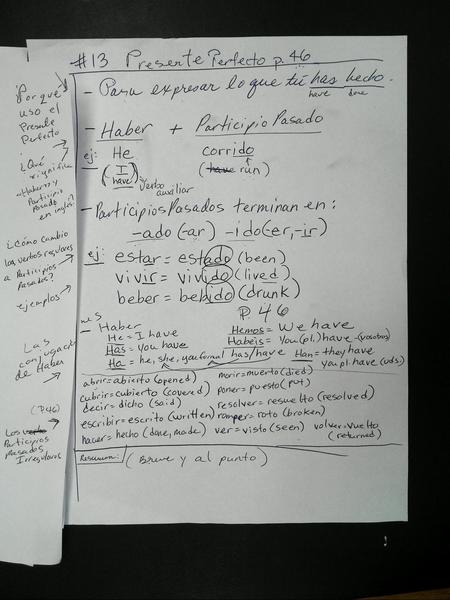 #13 Presente Perfecto p. 46
- Para expresar lo que tú has hecho.
have done
- Haber + Participio Pasado
ej: He corrido
(I have) Verbo auxiliar (have run)
- Participios Pasados terminan en:
-ado (-ar) -ido (-er, -ir)
ej: estar = estado (been)
vivir = vivido (lived)
beber = bebido (drunk)
P. 46
- Haber
He = I have
Hemos = We have
Has = You have
Habéis = You (pl.) have - (vosotros)
Ha = he, she, you formal has/have
Han = they have
you pl. have (uds.)
abrir = abierto (opened)
morir = muerto (died)
cubrir = cubierto (covered)
poner = puesto (put)
decir = dicho (said)
resolver = resuelto (resolved)
escribir = escrito (written)
romper = roto (broken)
hacer = hecho (done, made)
ver = visto (seen)
volver = vuelto
(returned)
Resumen: (Breve y al punto)
¿Por qué
uso el
Presente
Perfecto?
¿Qué
significa
Haber y
Participio
Pasado
en inglés?
¿Cómo cambio
los verbos regulares
a Participios
Pasados?
ejemplos
Las
conjugaciones
de Haber
(P. 46)
Los
Participios
Pasados
Irregulares